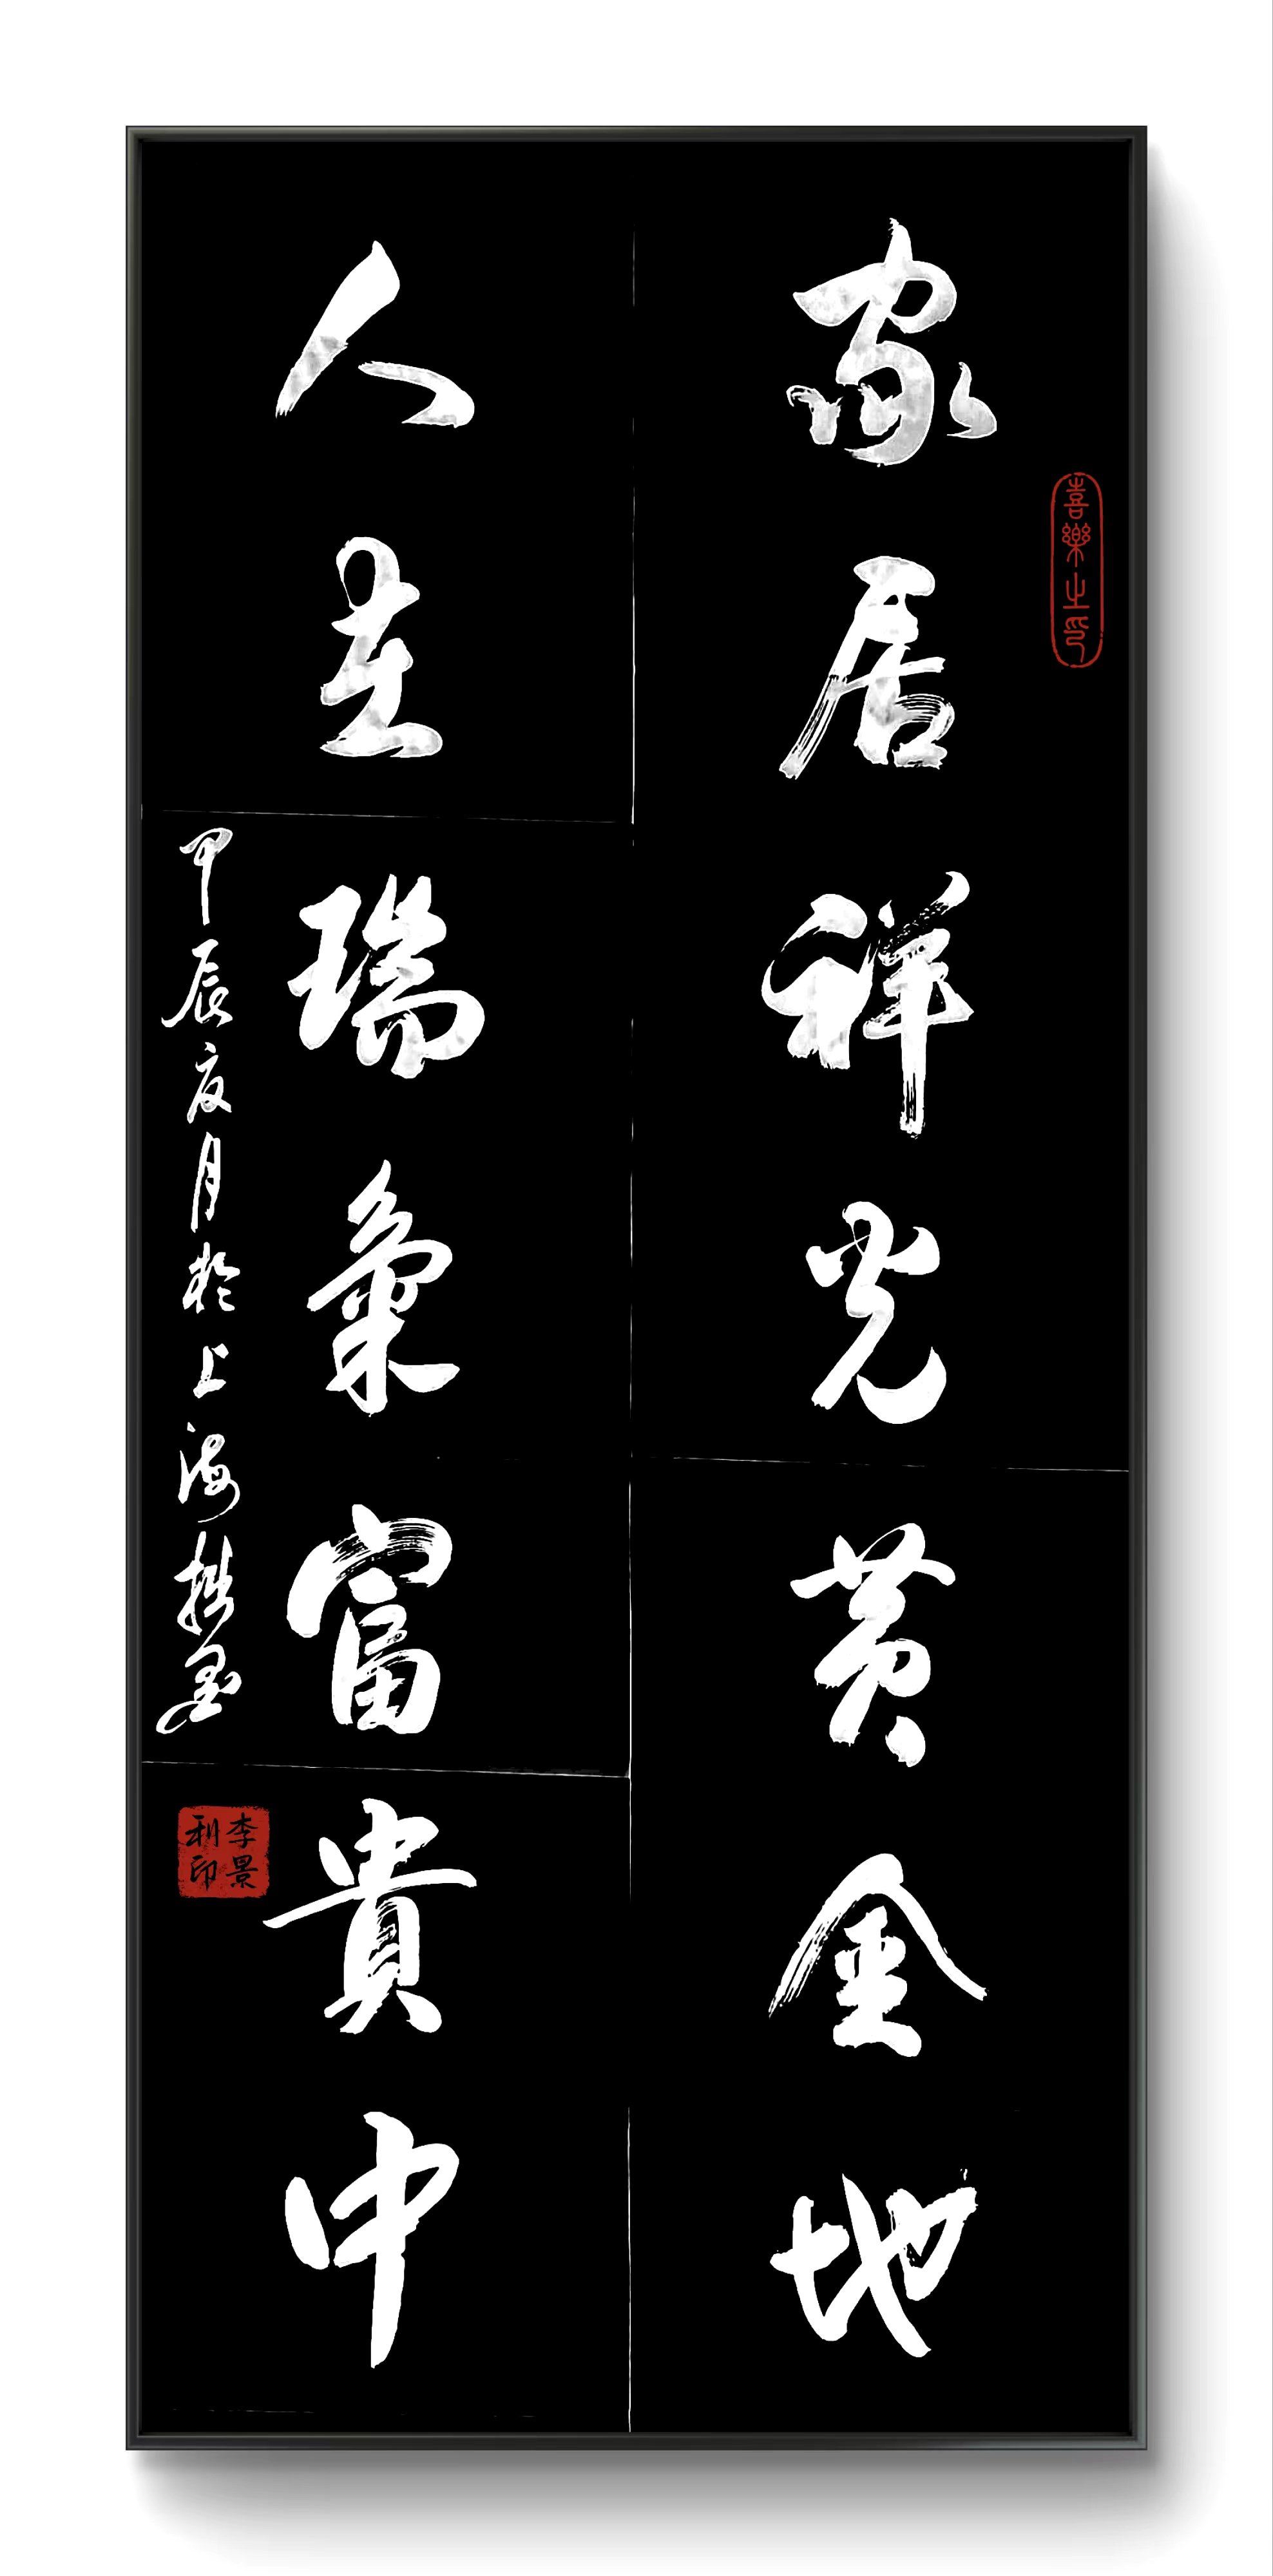 家居祥光黄金地
喜樂之印
人在瑞氣富貴中
甲辰夏月於上海
李景
利印